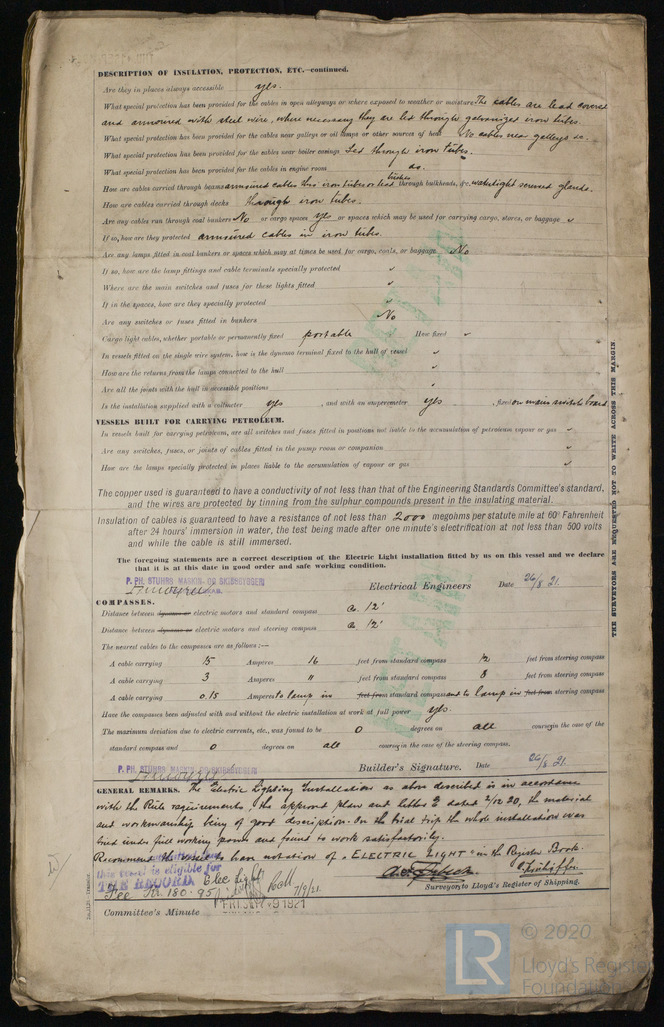 DESCRIPTION OF INSULATION, PROTECTION, ETC.—continued.
Are they in places always accessible yes.
What special protection has been provided for the cables in open alleyways or where exposed to weather or moisture The cables are lead covered
and armoured with steel wire, where necessary they are led through galvanized iron tubes.
What special protection has been provided for the cables near galleys or oil lamps or other sources of heat No cables near galleys &c.
What special protection has been provided for the cables near boiler casings Led through iron tubes.
What special protection has been provided for the cables in engine room do.
How are cables carried through beams armoured cables thro iron tubes or lead bushes through bulkheads, &c. watertight screwed glands.
How are cables carried through decks through iron tubes.
Are any cables run through coal bunkers No or cargo spaces yes or spaces which may be used for carrying cargo, stores, or baggage ✓
If so, how are they protected armoured cables in iron tubes.
Are any lamps fitted in coal bunkers or spaces which may at times be used for cargo, coals, or baggage No
If so, how are the lamp fittings and cable terminals specially protected ✓
Where are the main switches and fuses for these lights fitted ✓
If in the spaces, how are they specially protected ✓
Are any switches or fuses fitted in bunkers No
Cargo light cables, whether portable or permanently fixed portable How fixed ✓
In vessels fitted on the single wire system, how is the dynamo terminal fixed to the hull of vessel ✓
How are the returns from the lamps connected to the hull ✓
Are all the joints with the hull in accessible positions ✓
Is the installation supplied with a voltmeter yes , and with an amperemeter yes , fixed on main switch board
VESSELS BUILT FOR CARRYING PETROLEUM.
In vessels built for carrying petroleum, are all switches and fuses fitted in positions not liable to the accumulation of petroleum vapour or gas ✓
Are any switches, fuses, or joints of cables fitted in the pump room or companion ✓
How are the lamps specially protected in places liable to the accumulation of vapour or gas ✓
The copper used is guaranteed to have a conductivity of not less than that of the Engineering Standards Committee's standard,
and the wires are protected by tinning from the sulphur compounds present in the insulating material.
Insulation of cables is guaranteed to have a resistance of not less than 2000 megohms per statute mile at 60° Fahrenheit
after 24 hours' immersion in water, the test being made after one minute's electrification at not less than 500 volts
and while the cable is still immersed.
The foregoing statements are a correct description of the Electric Light installation fitted by us on this vessel and we declare
that it is at this date in good order and safe working condition.
P. PH. STUHRS MASKIN- OG SKIBSBYGGERI
Electrical Engineers Date 26/8 21.
COMPASSES.
Distance between dynamo or electric motors and standard compass a. 12'
Distance between dynamo or electric motors and steering compass a. 12'
The nearest cables to the compasses are as follows:—
A cable carrying 15 Amperes 16 feet from standard compass 12 feet from steering compass
A cable carrying 3 Amperes " feet from standard compass 8 feet from steering compass
A cable carrying 0.15 Amperes to lamp in feet from standard compass and to lamp in feet from steering compass
Have the compasses been adjusted with and without the electric installation at work at full power yes.
The maximum deviation due to electric currents, etc., was found to be 0 degrees on all course in the case of the
standard compass and 0 degrees on all course in the case of the steering compass.
P. PH. STUHRS MASKIN- OG SKIBSBYGGERI
Builder's Signature. Date 26/8 21.
GENERAL REMARKS. The Electric Lighting Installations as above described is in accordance
with the Rule requirements, the approved plan and letter E dated 2/12 20, the material
and workmanship being of good description. On the trial trip the whole installation was
tried under full working power and found to work satisfactorily.
Recommend the vessel to have notation of "ELECTRIC LIGHT" in the Register Book.
this vessel is eligible for
THE RECORD Elec Light
Fee Kr. 180.95 7/9/21
Surveyors to Lloyd's Register of Shipping.
FRI. SEP. 9 1921
Committee's Minute
THE SURVEYORS ARE REQUESTED NOT TO WRITE ACROSS THIS MARGIN.
LR
© 2020
Lloyd's Register
Foundation